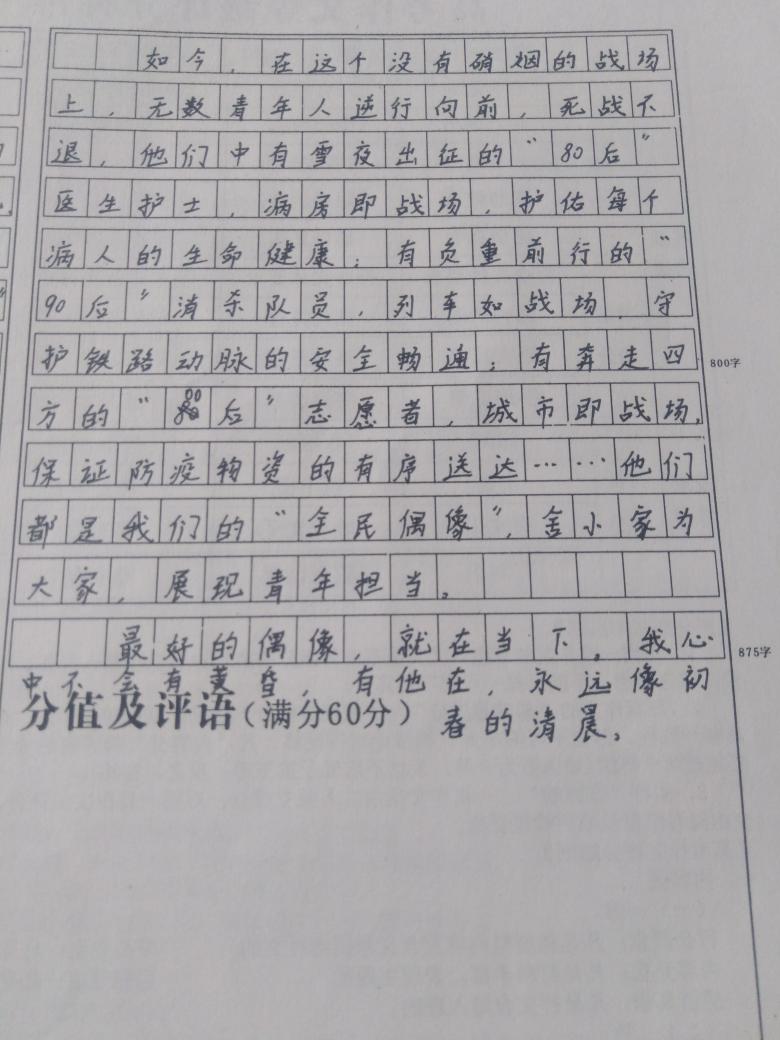 如今，在这个没有硝烟的战场
上，无数青年人逆行向前，死战不
退，他们中有雪夜出征的“80后”
医生护士，病房即战场，护佑每个
病人的生命健康；有负重前行的“
90后”消杀队员，列车如战场，守
护铁路动脉的安全畅通；有奔走四
800字
方的“00后”志愿者，城市即战场，
保证防疫物资的有序送达……他们
都是我们的“全民偶像”，舍小家为
大家，展现青年担当。
最好的偶像，就在当下。我心
875字
中不会有黄昏，有他在，永远像初
春的清晨。
分值及评语（满分60分）